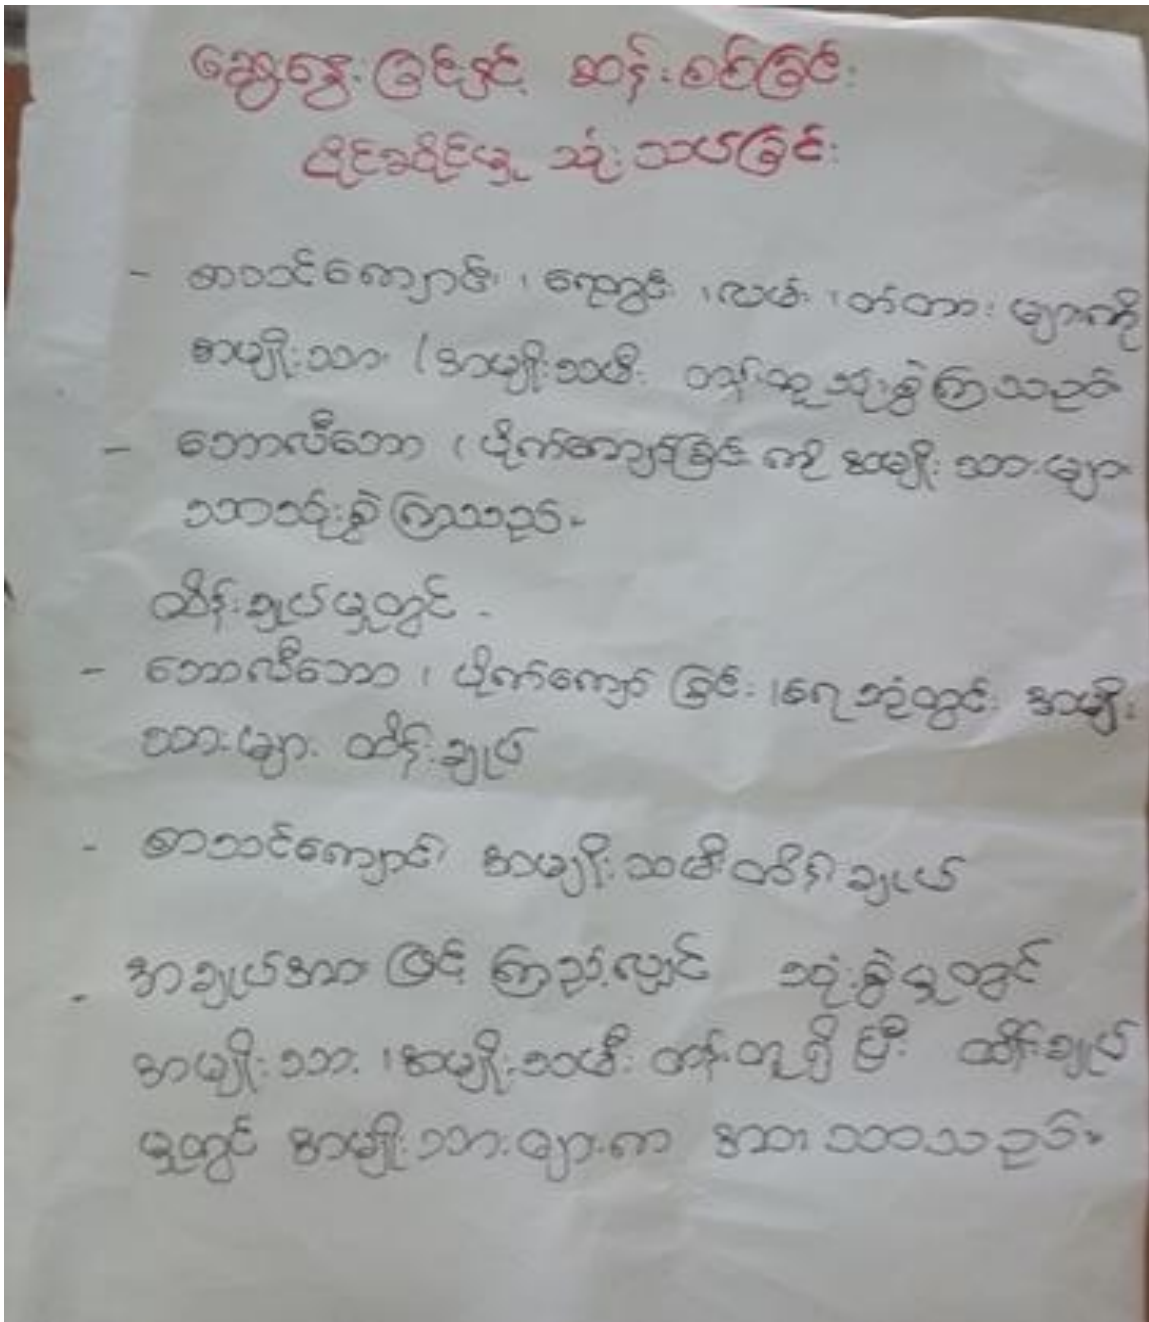 ဆွေးနွေးခြင်းနှင့် ဆန်းစစ်ခြင်း
ပိုင်ဆိုင်မှု သုံးသပ်ခြင်း
- စာသင်ကျောင်း ၊ ရေတွင်း ၊ လမ်း ၊ တံတား များကို
အမျိုးသား / အမျိုးသမီး တန်းတူသုံးစွဲကြသည်။
- ဘောလီဘော ၊ ပိုက်ကျော်ခြင်း ကို အမျိုးသားများ
သာသုံးစွဲကြသည်။
ထိန်းချုပ်မှုတွင် -
- ဘောလီဘော ၊ ပိုက်ကျော် ခြင်း ၊ ရေဘုံတွင်း အမျိုး
သားများ ထိန်းချုပ်
- စာသင်ကျောင်း အမျိုးသမီးထိန်းချုပ်
- အချုပ်အားဖြင့် ကြည့်လျှင် သုံးစွဲမှုတွင်
အမျိုးသား ၊ အမျိုးသမီး တန်းတူရှိပြီး ထိန်းချုပ်
မှုတွင် အမျိုးသားများက အားသာသည်။